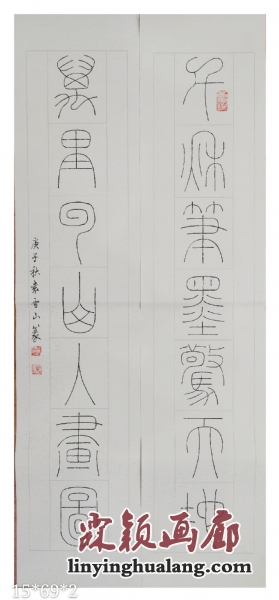 千秋筆墨驚天地
萬里云山入畫圖
庚子秋袁雪山篆
霖颖画廊
linyinghualang.com
15*69*2